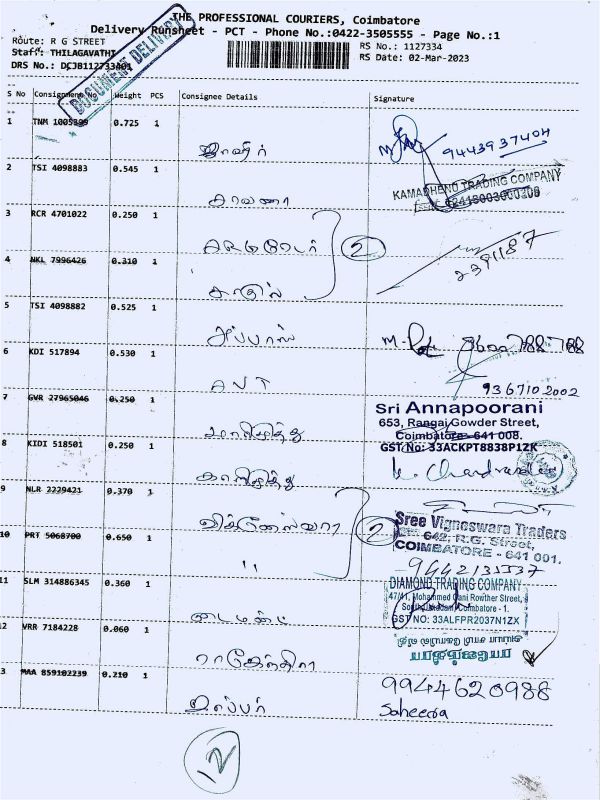 THE PROFESSIONAL COURIERS, Coimbatore
Delivery Runsheet - PCT - Phone No.:0422-3505555 - Page No.:1
Route: R G STREET
Staff: THILAGAVATHI
DRS No.: DCJB112733401
RS No.: 1127334
RS Date: 02-Mar-2023
DOCUMENT DELIVERY
S No Consignment No Weight PCS Consignee Details Signature
1 TNM 1005399 0.725 1
9443937404
2 TSI 4098883 0.545 1
KAMADHENU TRADING COMPANY
சரவணா
3 RCR 4701022 0.250 1
2
2391187
4 NKL 7996426 0.310 1
5 TSI 4098882 0.525 1
அப்பாஸ்
6 KDI 517894 0.530 1
AVT
9367102002
7 GVR 27965046 0.250 1
Sri Annapoorani
653, Rangai Gowder Street,
Coimbatore - 641 008.
GST No: 33ACKPT8838P1ZK
மாரிமுத்து
8 KIDI 518501 0.250 1
காளிமுத்து
9 NLR 2229421 0.370 1
விக்னேஸ்வரா
2
Sree Vigneswara Traders
642, R.G. Street,
COIMBATORE - 641 001.
10 PRT 5068700 0.650 1
"
9442135537
11 SLM 314886345 0.360 1
DIAMOND TRADING COMPANY
47/41, Mohammed Gani Rowther Street,
Coimbatore - 1.
GST NO: 33ALFPR2037N1ZX
டைமண்ட்
12 VRR 7184228 0.060 1
ராஜேந்திரா
13 MAA 859102239 0.210 1
9944620988
Saheera
12